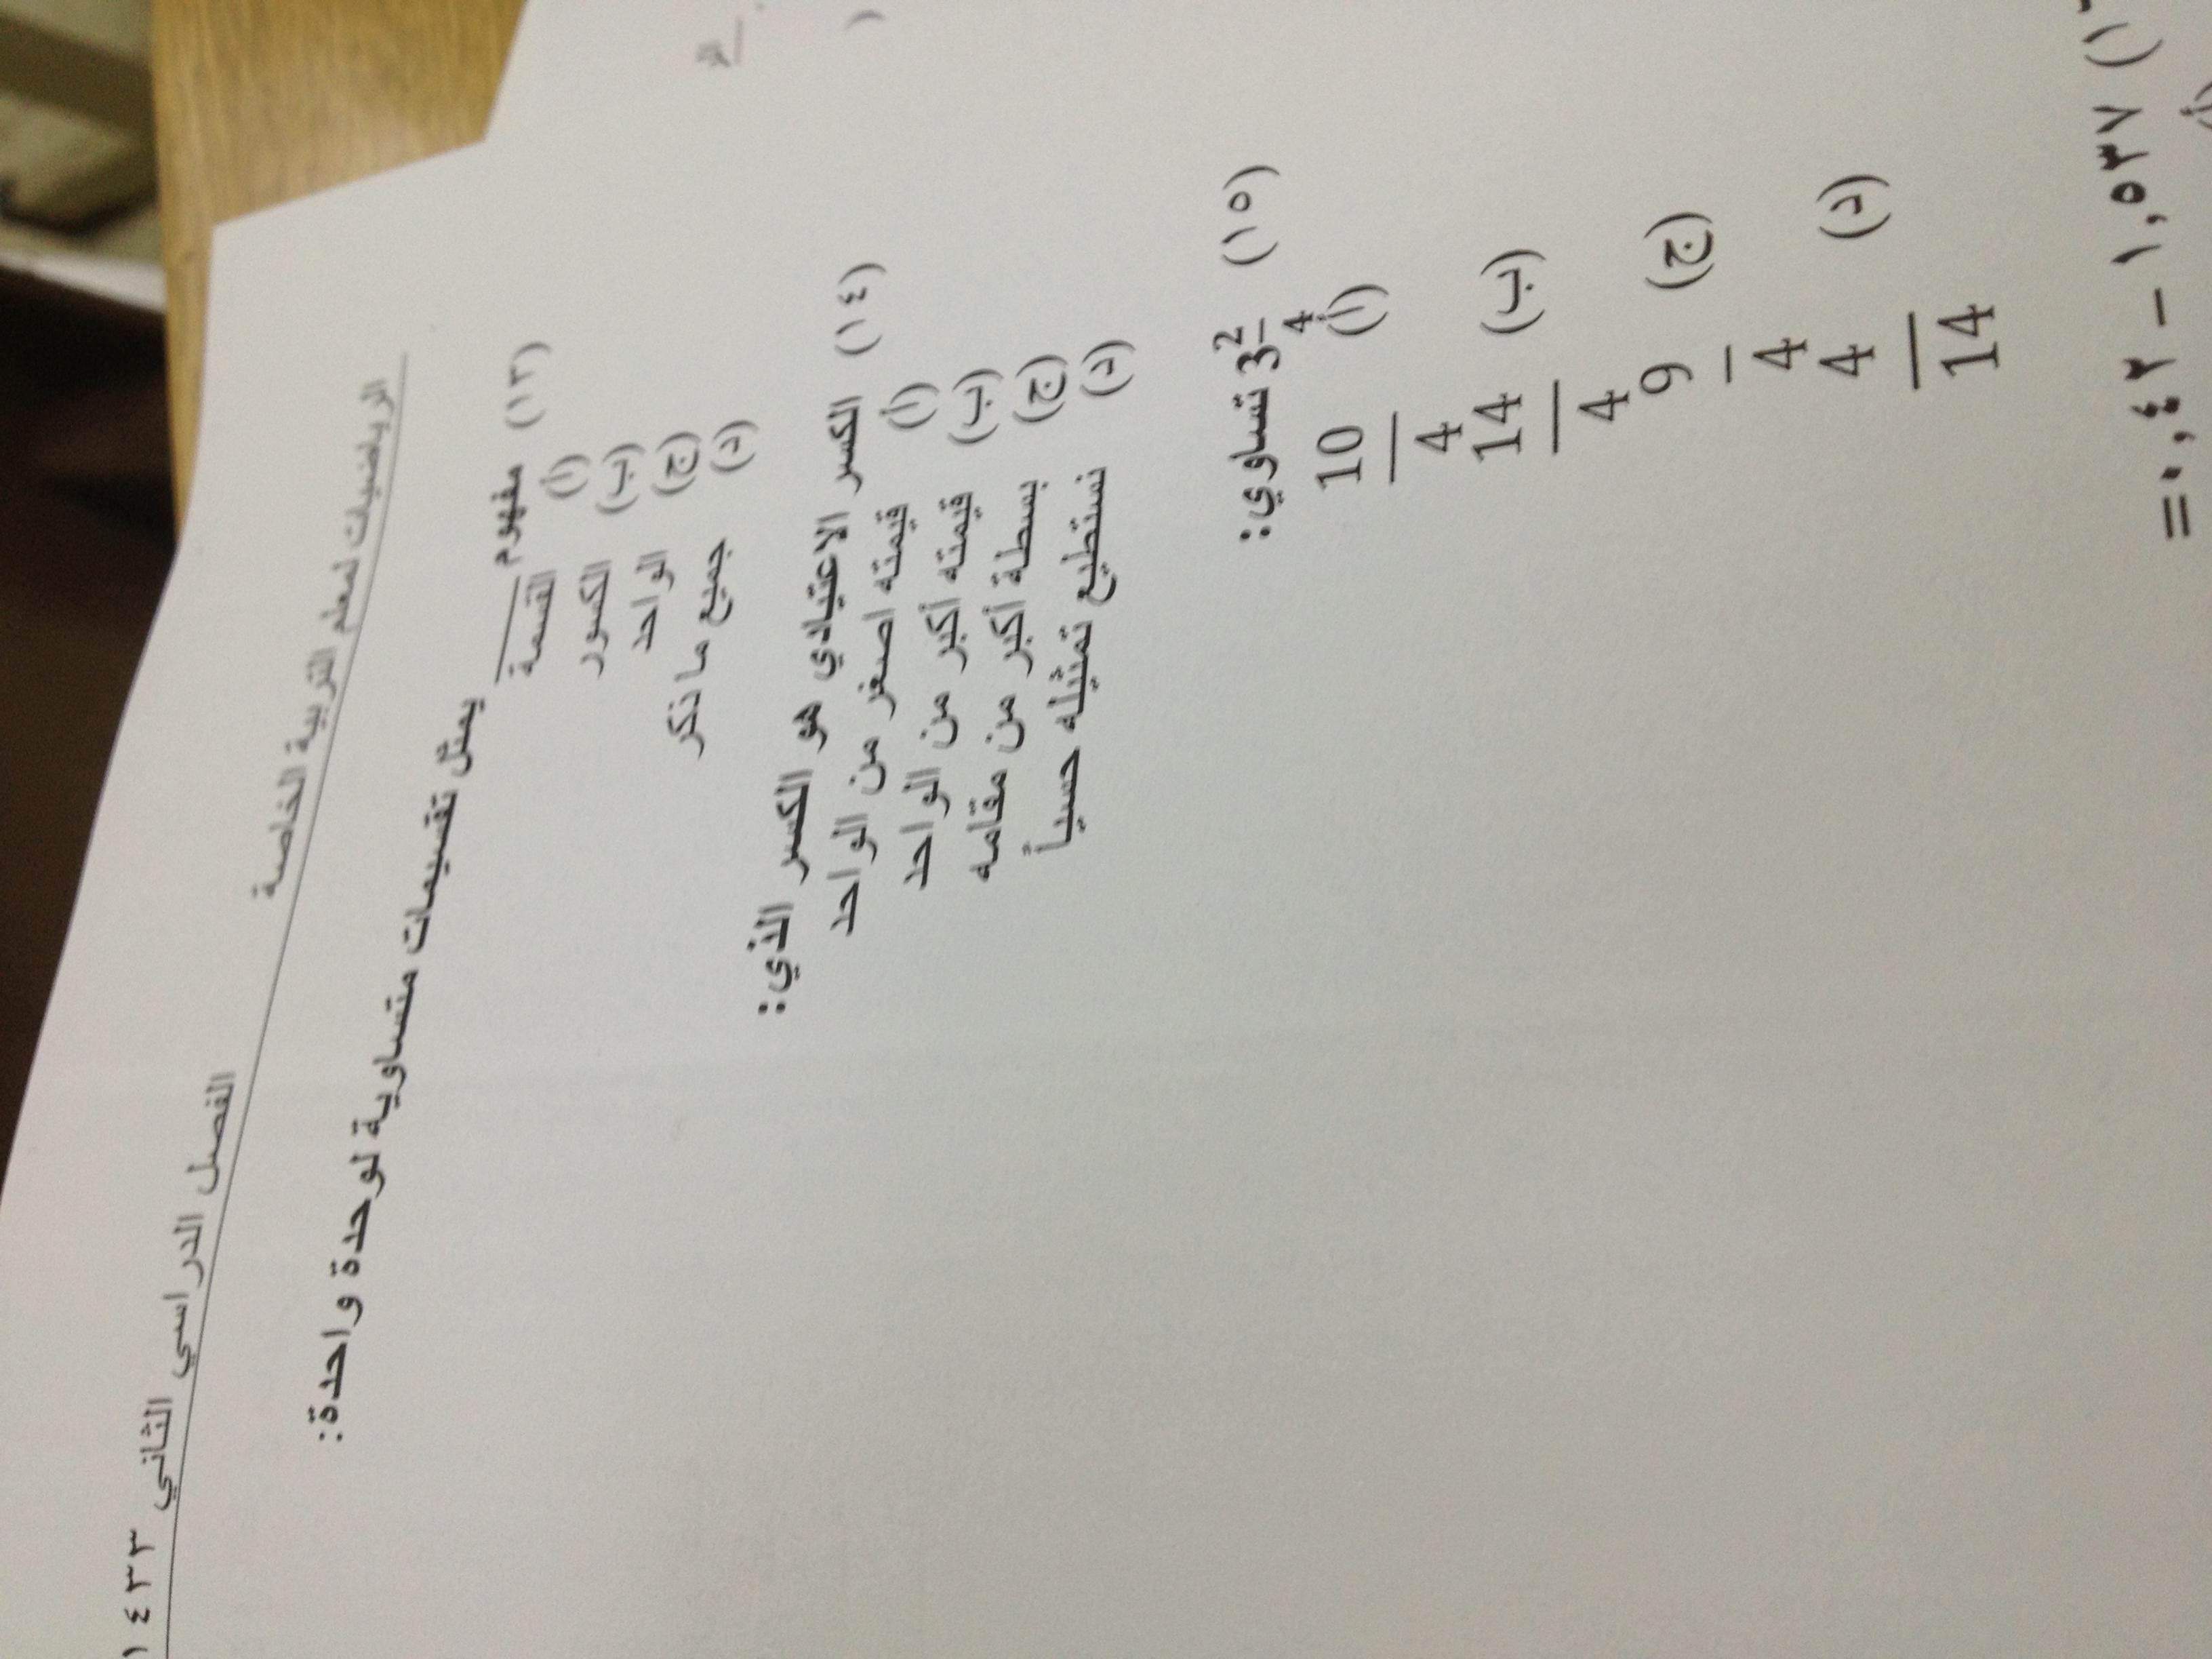 الرياضيات لمعلم التربية الخاصة
الفصل الدراسي الثاني ١٤٣٣
(١٣) مفهوم ____ يمثل تقسيمات متساوية لوحدة واحدة:
(أ) القسمة
(ب) الكسور
(ج) الواحد
(د) جميع ما ذكر
(١٤) الكسر الاعتيادي هو الكسر الذي:
(أ) قيمته اصغر من الواحد
(ب) قيمته أكبر من الواحد
(ج) بسطة أكبر من مقامه
(د) نستطيع تمثيله حسياً
(١٥) 3 2/4 تساوي:
(أ) 10/4
(ب) 14/4
(ج) 9/4
(د) 4/14
١,٥٣٧ – ٠,٤٢ =
(أ)